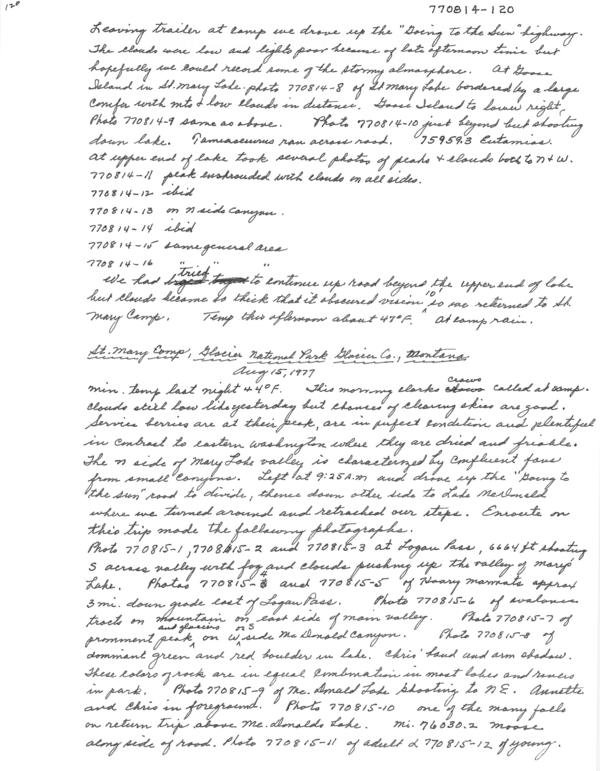 120
770814-120
Leaving trailer at camp we drove up the "Going to the Sun" highway.
The clouds were low and lights poor because of late afternoon time but
hopefully we could record some of the stormy atmosphere. At Goose
Island in St. Mary Lake photo 770814-8 of St Mary Lake bordered by a large
conifer with mts & low clouds in distance. Goose Island to lower right,
Photo 770814-9 same as above. Photo 770814-10 just beyond but shooting
down lake. Tamiasciurus ran across road. 75959.3 Eutamias.
At upper end of lake took several photos of peaks & clouds both to N & W.
770814-11 peak enshrouded with clouds on all sides.
770814-12 ibid
770814-13 on N side canyon.
770814-14 ibid
770814-15 same general area
770814-16 " " "
We had tried to continue up road beyond the upper end of lake
but clouds became so thick that it obscured vision so we returned to St
Mary Camp. Temp this afternoon about 47°F. At camp rain.
St. Mary Camp, Glacier National Park Glacier Co., Montana
Aug 15, 1977
min. temp last night 44°F. This morning clarks crows called at camp.
Clouds still low like yesterday but chances of clearing skies are good.
Service berries are at their peak, are in perfect condition and plentiful
in contrast to eastern Washington where they are dried and friable.
The N side of Mary Lake valley is characterized by confluent fans
from small canyons. Left at 9:25 A.M and drove up the "Going to
the sun" road to divide, thence down other side to Lake McDonald
where we turned around and retraced our steps. Enroute on
this trip made the following photographs.
Photo 770815-1, 770815-2 and 770815-3 at Logan Pass, 6664 ft shooting
S across valley with fog and clouds pushing up the valley of Mary's
Lake. Photos 770815-4 and 770815-5 of Hoary marmots approx
3 mi. down grade east of Logan Pass. Photo 770815-6 of avalanche
tracts on mountain on east side of main valley. Photo 770815-7 of
prominent peak and glaciers on W side McDonald Canyon. Photo 770815-8 of
dominant green and red boulder in lake. Chris' hand and arm shadow.
These colors of rock are in equal combination in most lakes and rivers
in park. Photo 770815-9 of Mc. Donald Lake shooting to N E. Annette
and Chris in foreground. Photo 770815-10 one of the many falls
on return trip above Mc. Donalds Lake. Mi. 76030.2 moose
along side of road. Photo 770815-11 of adult & 770815-12 of young.